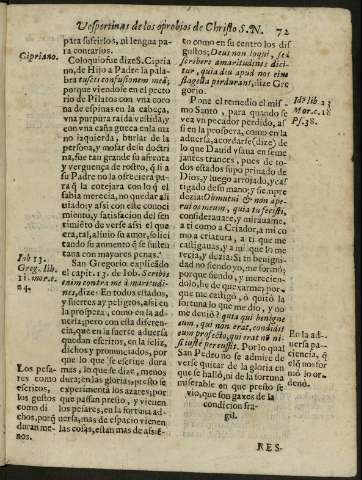 Vespertinas de los oprobios de Christo S. N. 72
para sufrirlos, ni lengua pa-
ra contarlos.
Cipriano.
Coloquio fue dize S. Cipria
no, de Hijo a Padre la pala-
bra
porque viendose en el preto
rio de Pilatos con vna coro
na de espinas en la cabeça,
vna purpura raida vestida, y
con vna caña gueca en la ma
no izquierda, burlar de la
persona, y mofar de su doctri
na, fue tan grande su afrenta
y verguença de rostro, que si a
su Padre no la ofreciera para
que la cotejara con lo que
sabia merecia, no quedar assi
miento, y satisfacion del sen
timiẽto de verse assi el que
era, tal, alsino su amor, solici
tando su aumento que se susten
tana con mayores penas.
Iob 13.
Greg. lib.
11. mor. c.
San Gregorio explicãdo
el capit. 13. de Iob. Scribis
enim contra me amaritudi-
nes, dize: En todos estados,
y suertes ay peligros, assi en
la prospera, como en la ad-
uersa; pero con esta diferen-
cia, que en la suerte aduersa
quedan escritos, en la feliz,
dichos y pronunciados, por
que lo que se escriue dura
mas, lo que se dize, menos
Los pesa-
res como
escritos,
los gustos
como di
chos, porque
duran me-
nos.
dura; en las glorias, presto se
experimenta los azares; por
que passan presto, y vienen
los pesares, en la fortuna ad-
uersa, mas de espacio vienen
las colas, estan mas de assiẽ-
to como en su centro los dis
gustos; Deus non loqui, sed
scribere amaritudines dici
tur, quia diu apud nos eius
flagella perdurant, dize Gre
gorio.
Idẽ lib. 23
Mor. c. 18
Ps. 38.
Pone el remedio el mis-
mo Santo, para quando se
vee vn pecador perdido, assi
si en la prospera, como en la
aduersa, acordarse (dize) de
lo que Dauid vsaua en seme
jantes trances, pues de to-
dos estados supo priuado de
Dios, y luego arrojado, y cas
tigado de su mano; y siempre
dezia: Obmutui &amp; non ape-
rui os meum, quia tu fecisti,
considerauare, y mirauame,
a ti como a Criador, a mi co
mo a criatura, a ti que me
castigauas, y a mi que lo me
recia, y dezia: Si tu benigni-
dad no siendo yo, me formò;
porque siendo, y merecien-
dolo, he de que varme; por-
que me castigò, ò quitò la
fortuna lo que me dio, y no
me deuiò? quia qui benigne
eum, qui non erat, condidit
eum profecto, qui erat nõ ni-
si iuste percussit. Por lo qual
San Pedro no se admire de
verse quitar de la gloria en
que se hallò, ni de la fortuna
miserable en que presto se
viò, que son gaxes de la
condicion fra-
gil.
En la ad-
uersa pa-
ciencia, que
el que nos for
mò lo or-
denò.
RES-